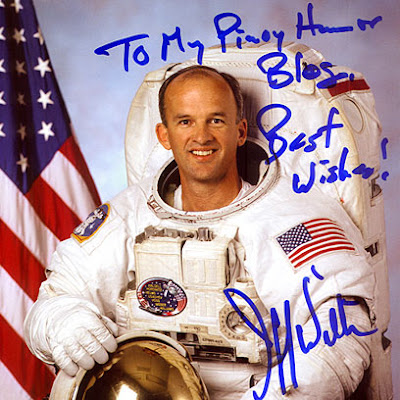 To My Pinoy Humor
Blog,
Best
Wishes!
Jeff